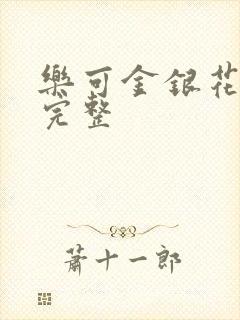 樂可金銀花
完整
蕭十一郎